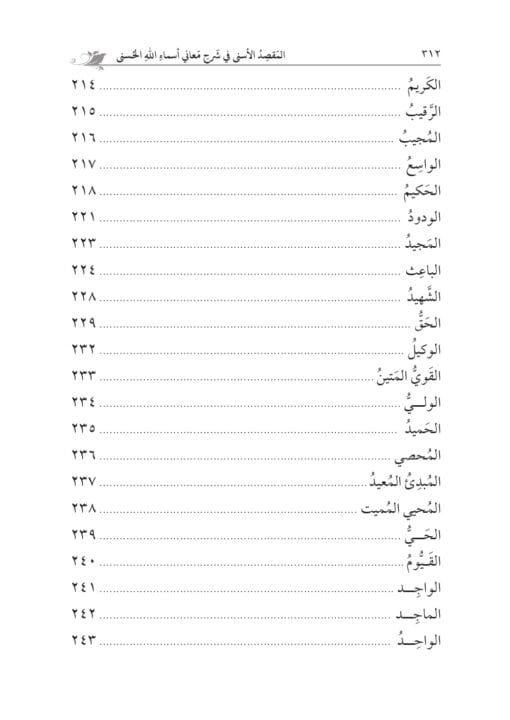 ٣١٢
المَقصِدُ الأسنى في شَرح مَعاني أسماءِ اللهِ الحُسنى
الكَريمُ ........ ٢١٤
الرَّقيبُ ........ ٢١٥
المُجيبُ ........ ٢١٦
الواسِعُ ........ ٢١٧
الحَكيمُ ........ ٢١٨
الودودُ ........ ٢٢١
المَجيدُ ........ ٢٢٣
الباعِث ........ ٢٢٤
الشَّهيدُ ........ ٢٢٨
الحَقُّ ........ ٢٢٩
الوكيلُ ........ ٢٣٢
القَويُّ المَتينُ ........ ٢٣٣
الولــيُّ ........ ٢٣٤
الحَميدُ ........ ٢٣٥
المُحصي ........ ٢٣٦
المُبدِئُ المُعيدُ ........ ٢٣٧
المُحيي المُميت ........ ٢٣٨
الحَــيُّ ........ ٢٣٩
القَيُّومُ ........ ٢٤٠
الواجِــد ........ ٢٤١
الماجِــد ........ ٢٤٢
الواحِــدُ ........ ٢٤٣